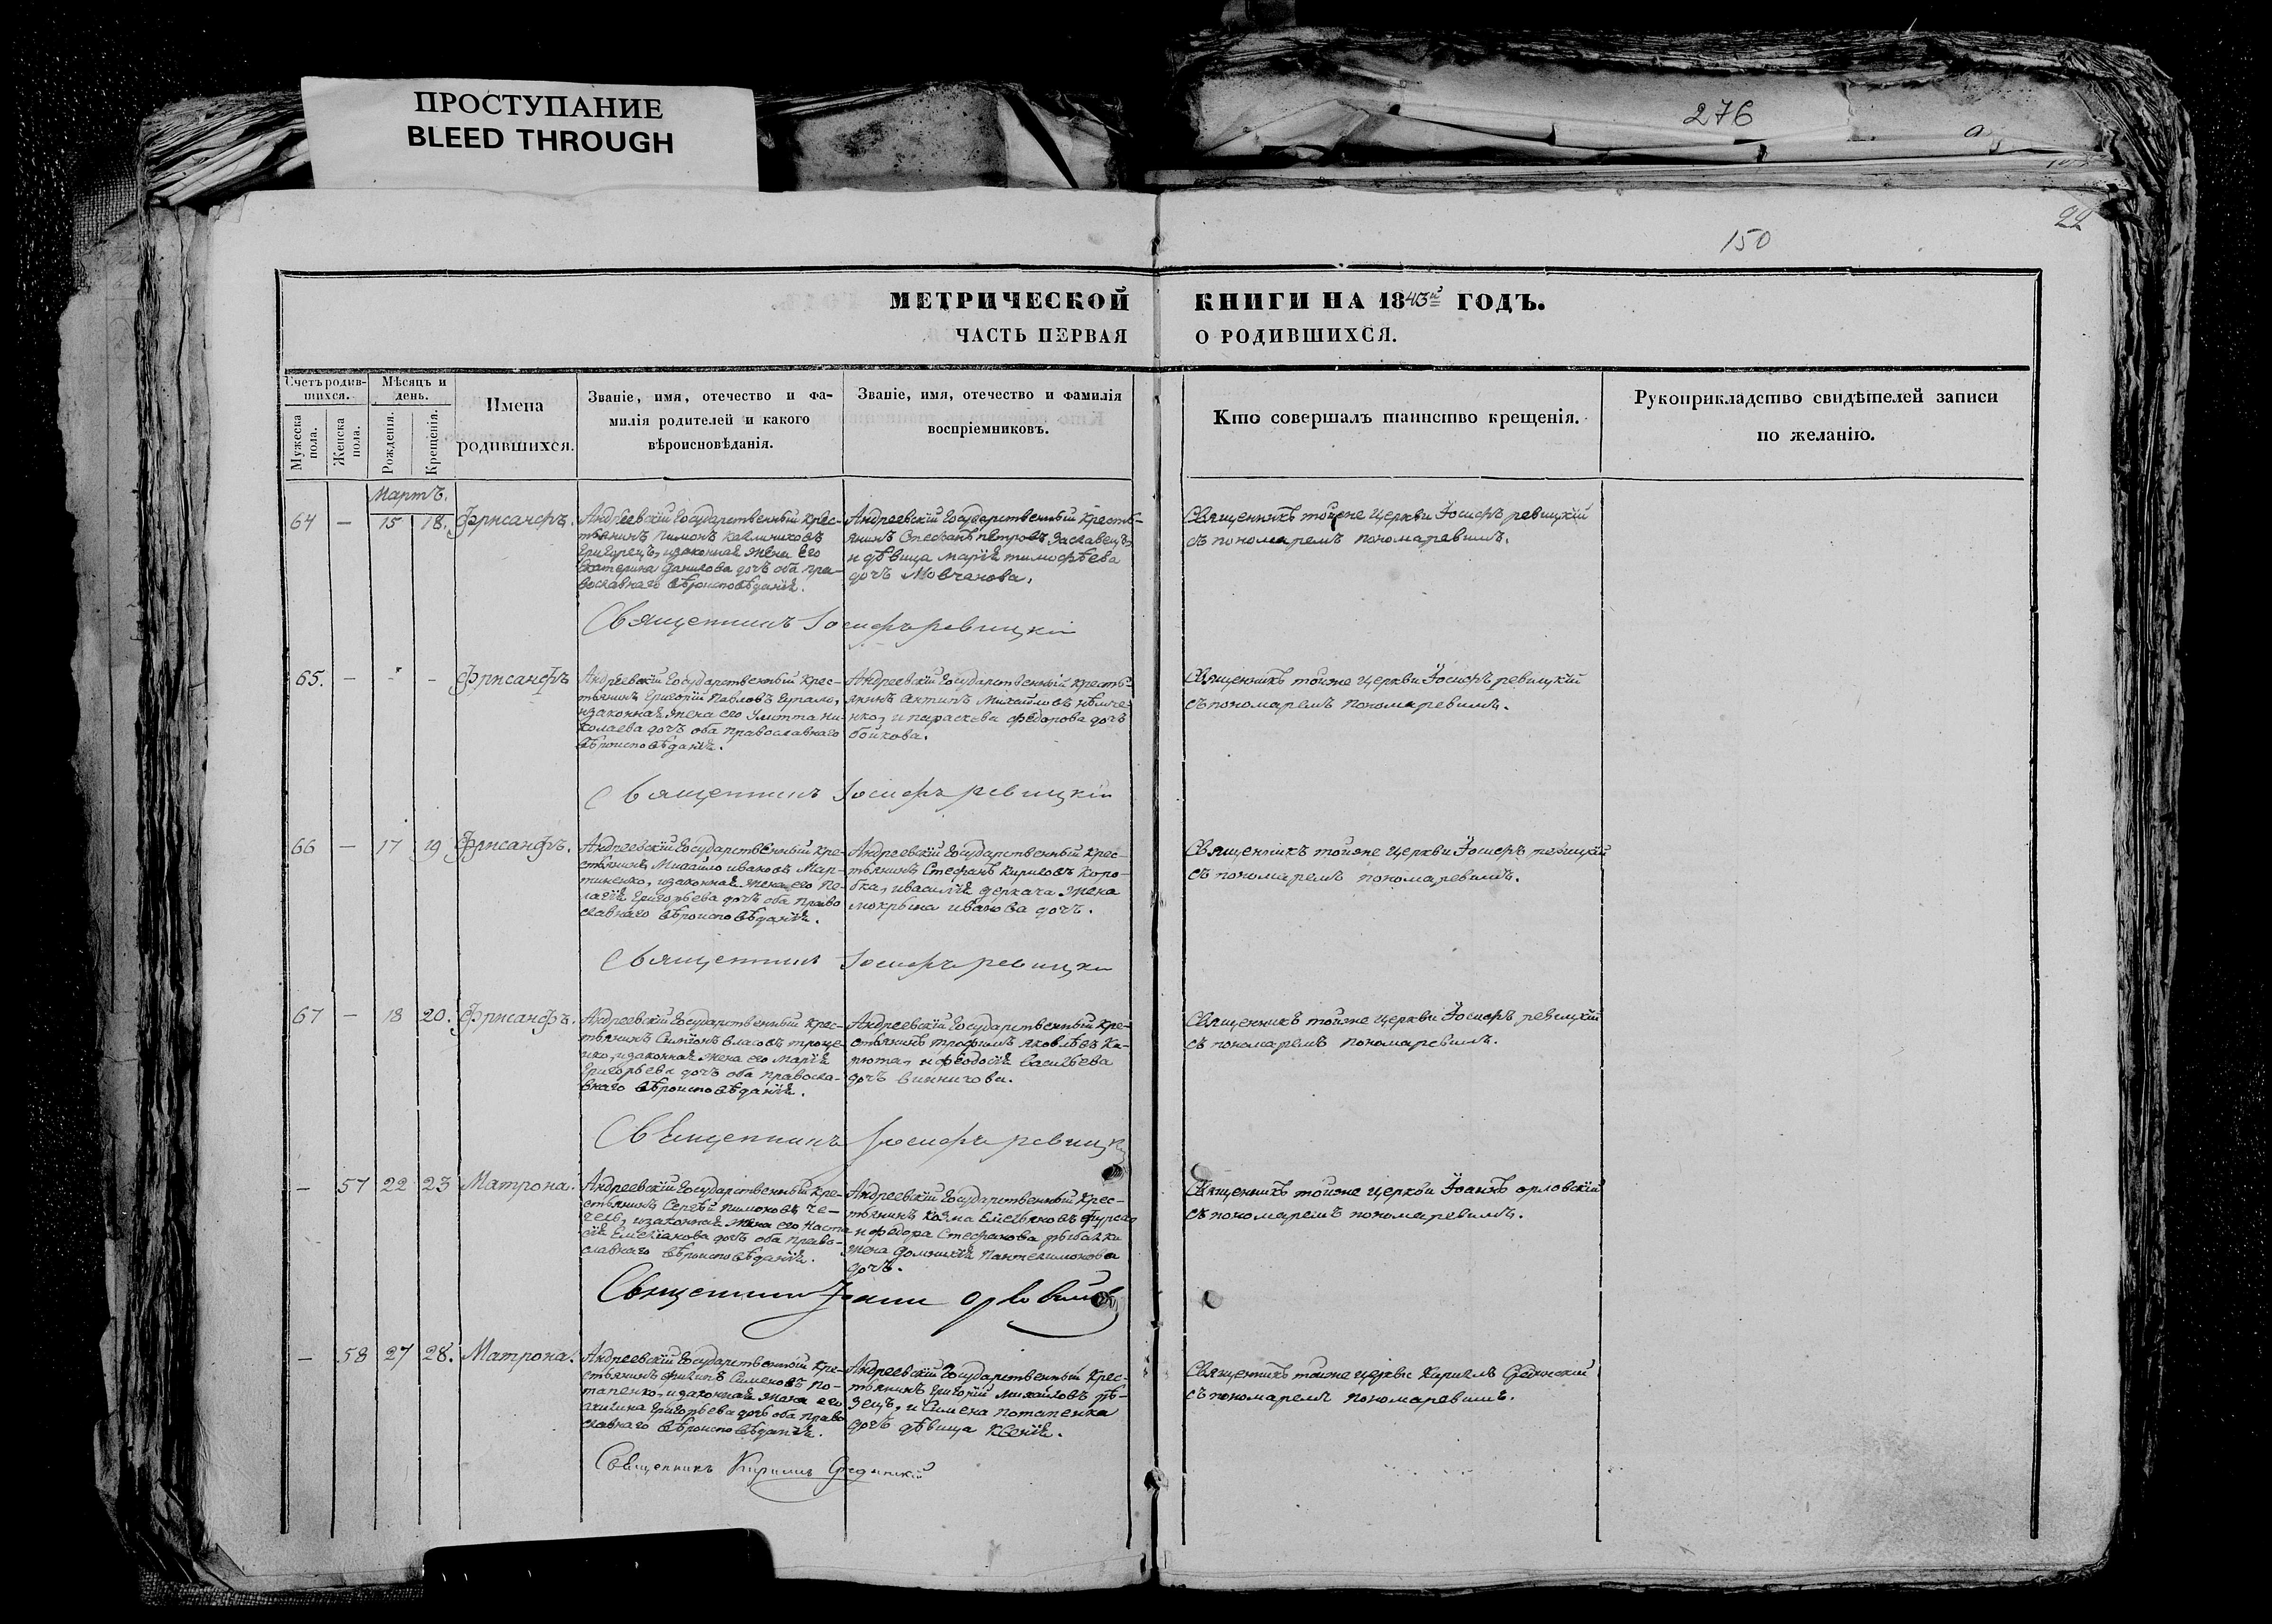 ПРОСТУПАНИЕ
BLEED THROUGH
276
22
150
МЕТРИЧЕСКОЙ КНИГИ НА 1843й ГОДЪ.
ЧАСТЬ ПЕРВАЯ О РОДИВШИХСЯ.
Счетъ родив-
шихся.
Мужеска пола.
Женска пола.
Мѣсяцъ и
день.
Рожденія.
Крещенія.
Имена
родившихся.
Званіе, имя, отечество и фа-
милія родителей и какого
вѣроисповѣданія.
Званіе, имя, отечество и фамилія
воспріемниковъ.
Кто совершалъ таинство крещенія.
Рукоприкладство свидѣтелей записи
по желанію.
Мартъ.
64 — 15 18. Фрисанфъ.
Андреевскій Государственный Крес-
тьянинъ Пимонъ Калиниковъ
Григурецъ, изаконная жена его
Екатерина Данилова дочь оба пра-
вославнаго вѣроисповѣданія.
Андреевскій Государственный Кресть-
янинъ Стефанъ Петровъ Заславецъ,
и дѣвица Марія Тимофѣева
дочь Мовчанова.
Священникъ тойже Церкви Іосифъ ревицкій
съ пономаремъ пономаревымъ.
Священникъ Іосифъ ревицкій
65. — - - Фрисанфъ
Андреевскій Государственный Крес-
тьянинъ Григорій Павловъ
изаконная жена его Улитта Ни-
колаева дочь оба православнаго
вѣроисповѣданія.
Андреевскій Государственный Кресть-
янинъ Антипъ Михайловъ Нѣмче-
нко, и параскева Федорова дочь
бойкова.
Священникъ тойже Церкви Іосифъ ревицкій
съ пономаремъ пономаревымъ.
Священникъ Іосифъ ревицкій
66 — 17 19 Фрисанфъ.
Андреевскій Государственный Кре-
стьянинъ Михайло ивановъ Мар-
тиненко, изаконная жена его Пе-
лагія Григорьева дочь оба право
славнаго вѣроисповѣданія.
Андреевскій Государственный Крес-
тьянинъ Стефанъ Кириловъ Коро-
бка, ивасилія деркача жена
мокрына иванова дочь.
Священникъ тойже Церкви Іосифъ ревицкій
съ пономаремъ пономаревымъ.
Священникъ Іосифъ ревицки
67 — 18 20. Фрисанфъ.
Андреевскій Государственный Крес-
тьянинъ Симіонъ власовъ троце-
нко, изаконная жена его Марія
Григорьева дочь оба правосла-
внаго вѣроисповѣданія.
Андреевскій Государственный Кре-
стьянинъ трофимъ яковлевъ Ка-
пюта, и феодосія Васильева
дочь винничова.
Священникъ тойже Церкви Іосифъ ревицкій
съ пономаремъ пономаревымъ.
Священникъ Іосифъ ревицк
— 57 22 23 Матрона.
Андреевскій Государственный Кре-
стьянинъ Сергѣй Пимоновъ Че-
чель, изаконная жена его Наста
сія Емельянова дочь оба право-
славнаго вѣроисповѣданія.
Андреевскій Государственный Крес-
тьянинъ Козма Емельяновъ Фурсо
и федора Стефанова рыбалки
жена Домникія Пантелимонова
дочь.
Священникъ тойже Церкви Іоаннъ орловскій
съ пономаремъ пономаревымъ.
Священникъ Іоанн орловскій
— 58 27 28. Матрона.
Андреевскій Государственный Кре-
стьянинъ Филипъ Семеновъ По-
тапенко, изаконная жена его
Григорьева дочь оба право
славнаго вѣроисповѣданія.
Андреевскій Государственный Крес-
тьянинъ Григорій Михайловъ рѣ-
зецъ, и Симена потапенка
дочь дѣвица Ксенія.
Священникъ тойже Церкви Кирилъ Срединскій
съ пономаремъ пономаревымъ.
Священникъ Кирилъ Срединскій